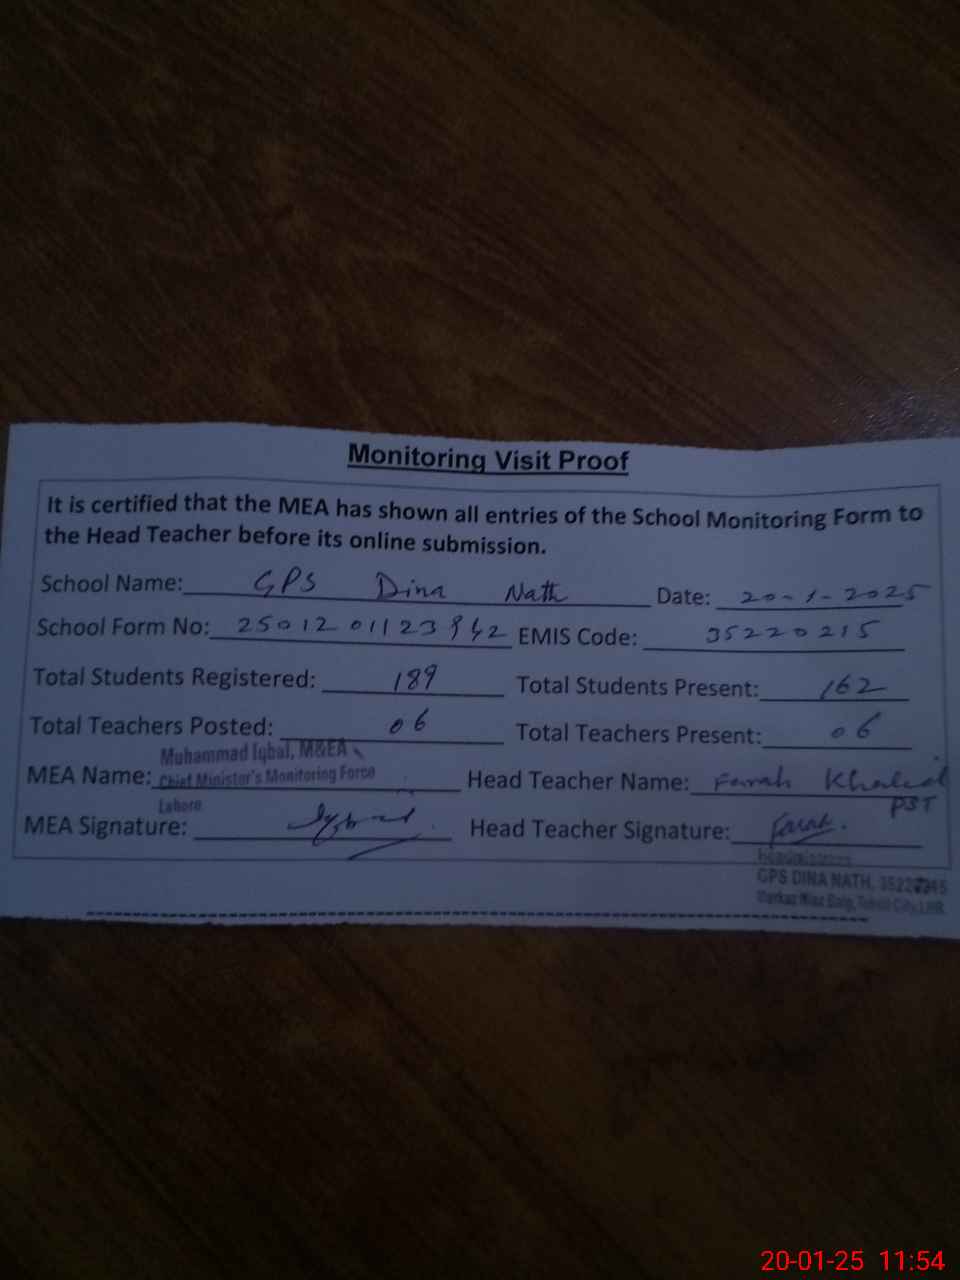 Monitoring Visit Proof
It is certified that the MEA has shown all entries of the School Monitoring Form to
the Head Teacher before its online submission.
School Name: GPS Dina Nath Date: 20-1-2025
School Form No: EMIS Code: 35220215
Total Students Registered: 189 Total Students Present: 162
Total Teachers Posted: 06 Total Teachers Present: 06
Muhammad Iqbal, M&EA
MEA Name: Chief Minister's Monitoring Force Head Teacher Name: Farah Khalid
PST
Lahore
MEA Signature: Head Teacher Signature: Farah.
Headmistress
GPS DINA NATH,
20-01-25 11:54